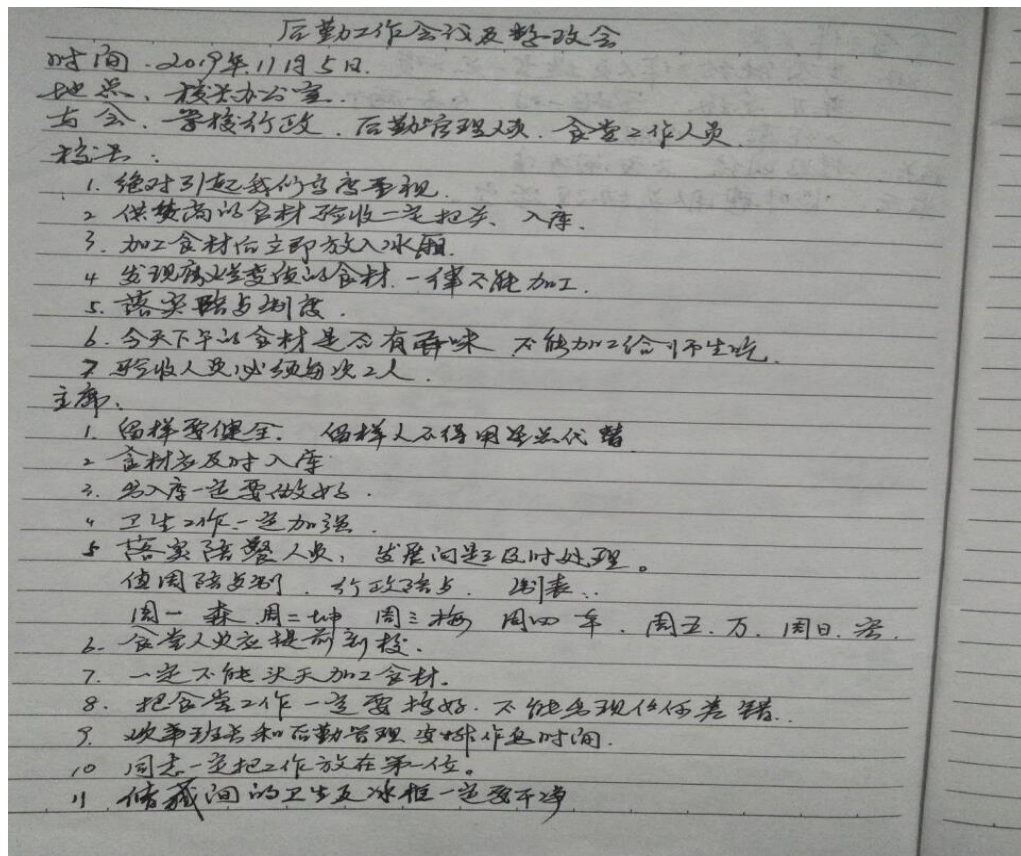 后勤工作会议及整改会
时间:2019年11月5日.
地点:校长办公室.
与会:学校行政.后勤管理人员.食堂工作人员.
校长:
1. 绝对引起我们高度重视.
2 供货商的食材验收一定把关、入库.
3. 加工食材后立即放入冰厢.
4 发现腐烂变质的食材.一律不能加工.
5. 落实陪与制度.
6. 今天下午的食材是否有异味 不能加工给师生吃.
7 验收人员必须每次2人.
主席:
1. 留样要健全. 留样人不得用其它代替
2 食材应及时入库
3. 出入库一定要做好.
4 卫生工作一定加强.
5 落实陪餐人员,发展问题及时处理。
值周陪与制.行政陪与.制表..
周一 森 周二 坤 周三 梅 周四 年.周五.万.周日.宏.
6- 食堂人员应提前到校.
7. 一定不能头天加工食材.
8. 把食堂工作一定要搞好.不能出现任何差错..
9. 炊事班长和后勤管理安排作息时间.
10 同志一定把工作放在第一位。
11 储藏间的卫生及冰柜一定要干净